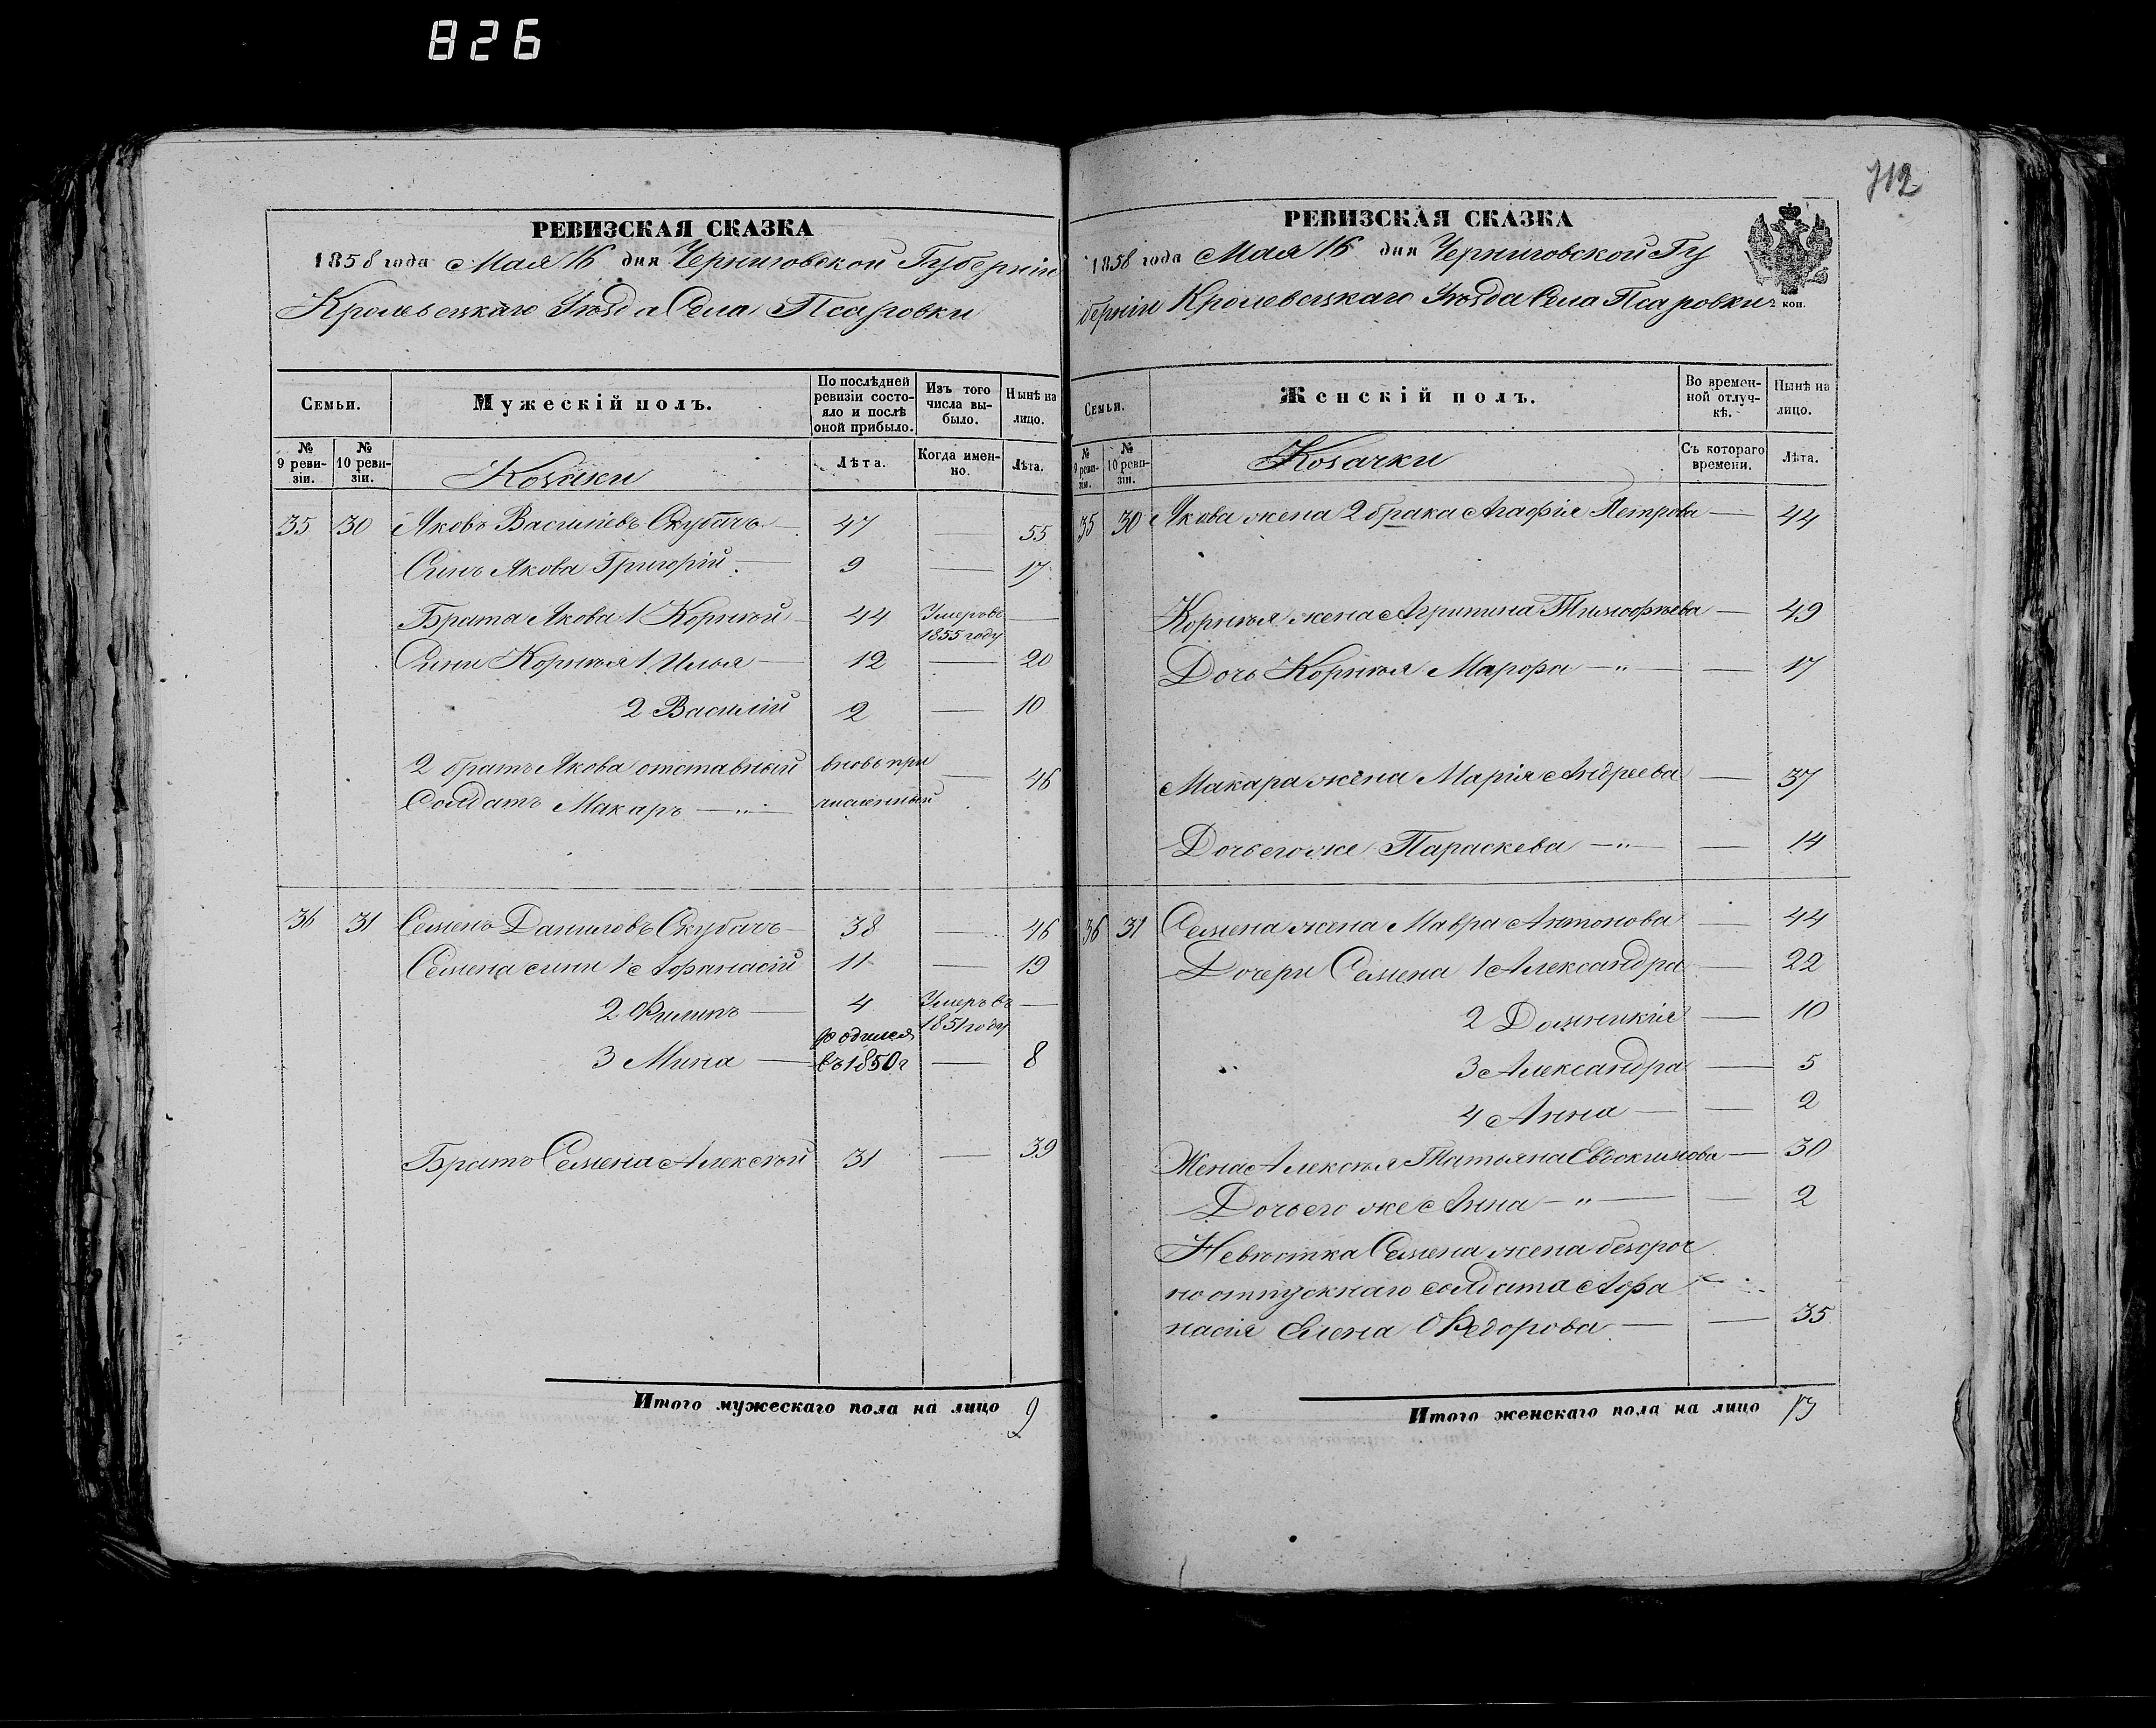 826
712
РЕВИЗСКАЯ СКАЗКА
1858 года Мая 16 дня Черниговской Губерніи
Кролевецкаго Уѣзда Села Псаровки
Семьи.
Мужескій полъ.
По послѣдней ревизіи состояло и послѣ оной прибыло.
Изъ того числа выбыло.
Нынѣ на лицо.
№ 9 ревизіи.
№ 10 ревизіи.
Козаки
Лѣта.
Когда именно.
Лѣта.
35 30 Яковъ Васильевъ Скубачъ — 47 — 55
Синъ Якова Григорій — 9 — 17
Брата Якова 1 Корнѣй 44 Умеръ въ 1855 году —
Сини Корнѣя 1 Илья — 12 — 20
2 Василій 2 — 10
2 братъ Якова отставный вновь при — 46
Солдатъ Макаръ — " — численный
36 31 Семенъ Даниловъ Скубачъ — 38 — 46
Семена сини 1 Афанасій 11 — 19
2 Филипъ — 4 Умеръ въ 1851 году —
3 Мина — родился въ 1850 г — 8
Братъ Семена Алексѣй 31 — 39
Итого мужескаго пола на лицо 9
РЕВИЗСКАЯ СКАЗКА
1858 года Мая 16 дня Черниговской Гу
берніи Кролевецкаго Уѣзда Села Псаровки
коп.
Семьи.
Женскій полъ.
Во временной отлучкѣ.
Нынѣ на лицо.
№ 9 ревизіи.
№ 10 ревизіи.
Козачки
Съ котораго времени.
Лѣта.
35 30 Якова жена 2 брака Агафія Петрова — 44
Корнѣя жена Агрипина Тимофѣева — 49
Дочь Корнѣя Марфа — " — — 17
Макара жена Марія Андреева — 37
Дочь его же Параскева — " — — 14
36 31 Семена жена Мавра Антонова — 44
Дочери Семена 1 Александра — 22
2 Домникія — 10
3 Александра — 5
4 Анна — — 2
Жена Алексѣя Татьяна Евдокимова — 30
Дочь его же Анна — " — — 2
Невѣстка Семена жена безсроч
но отпускнаго солдата Афа
насія Елена Федорова — — 35
Итого женскаго пола на лицо 13